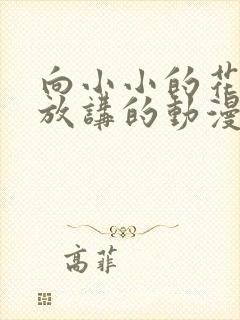 向小小的花
放講的動漫
高菲